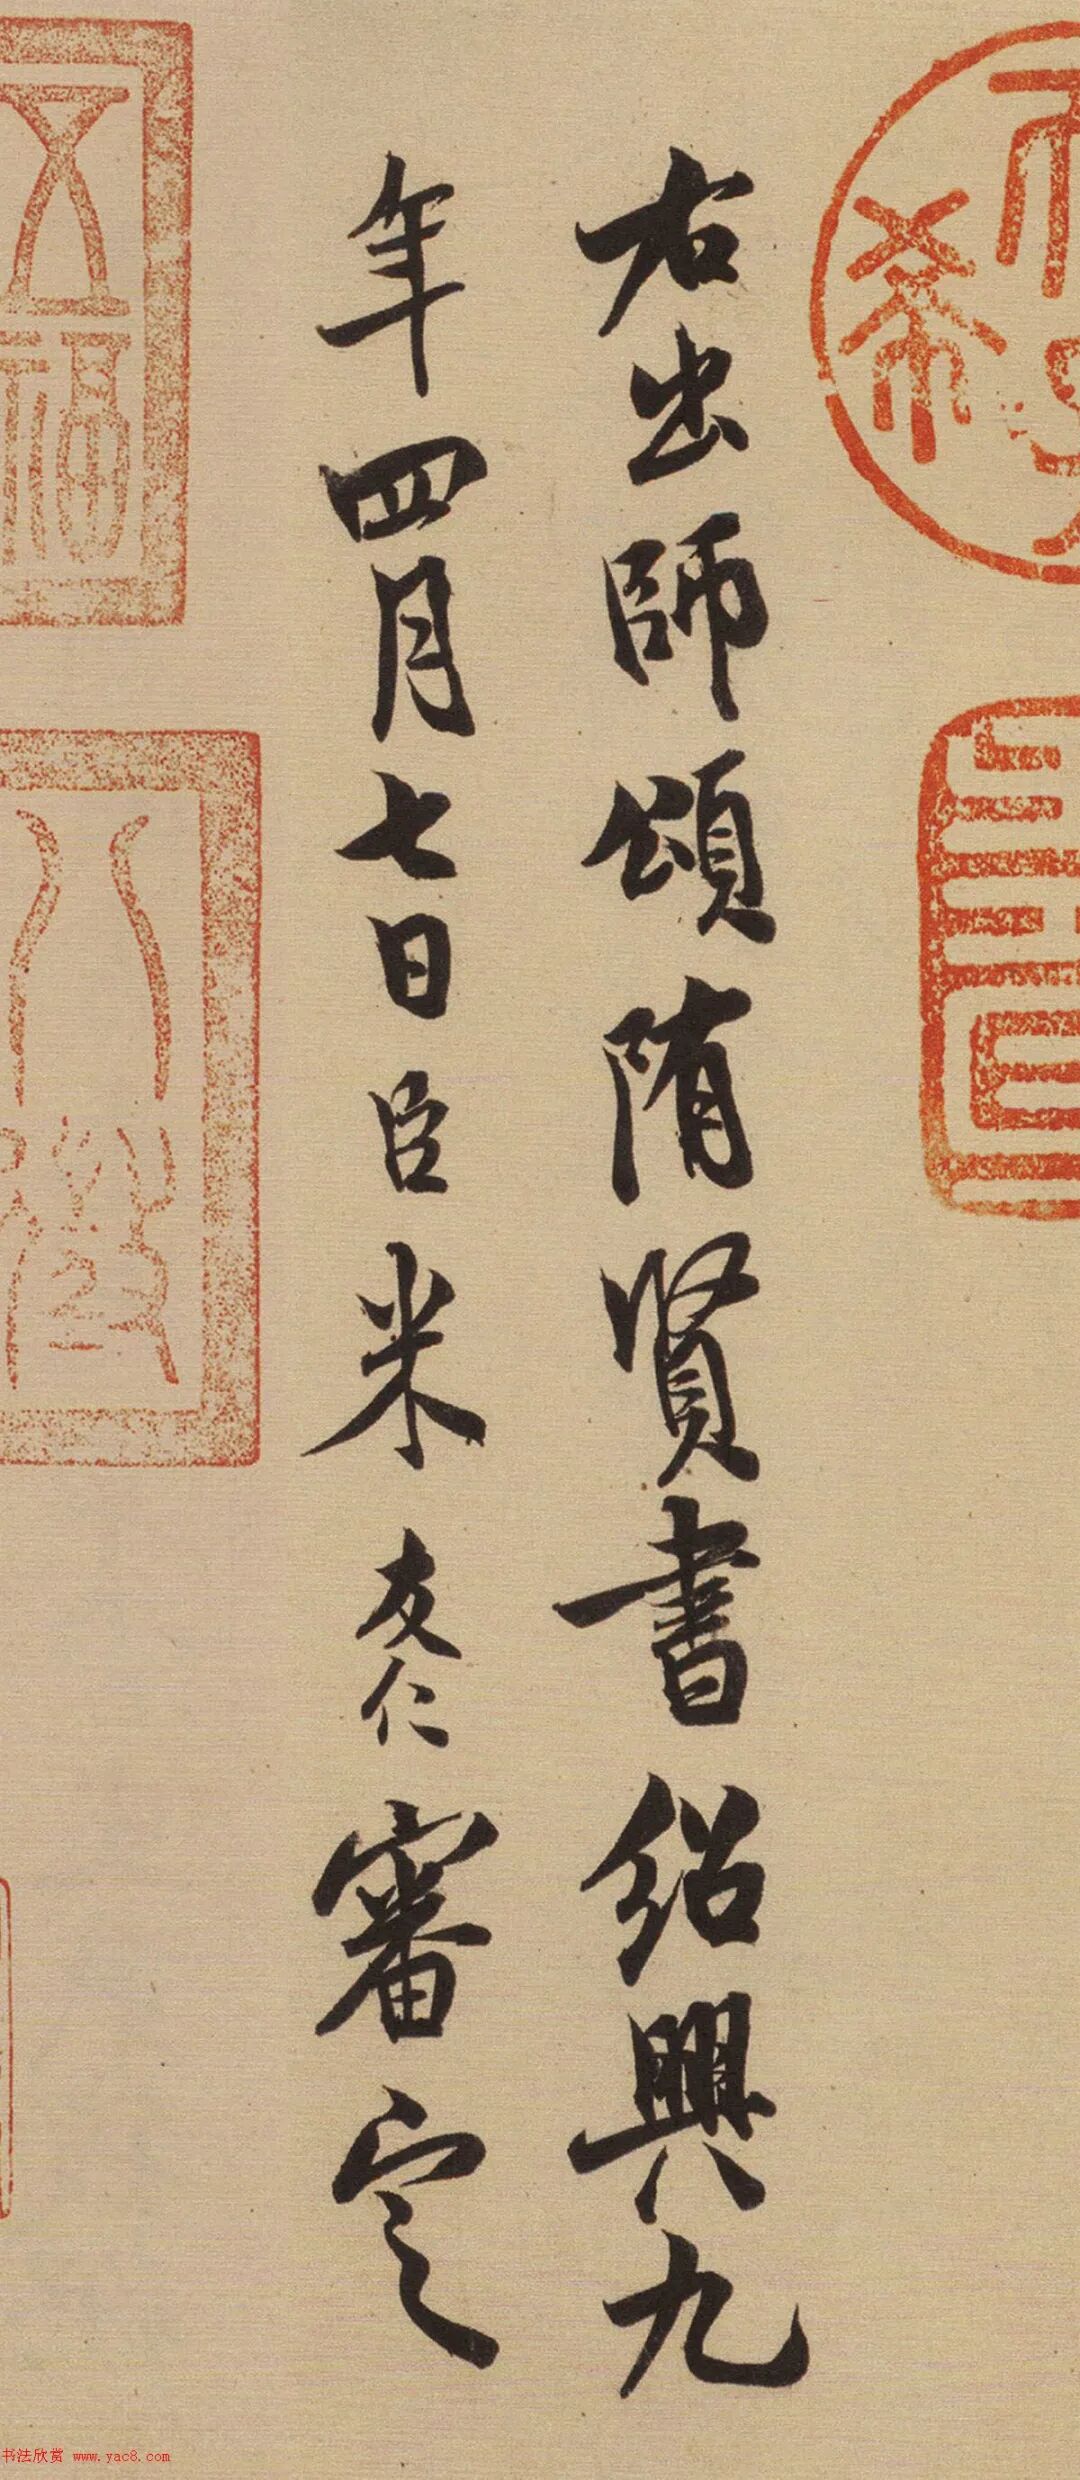 右出師頌隋賢書紹興九
年四月七日臣米友仁審定
五福
八徵
希
书法欣赏 www.yac8.com